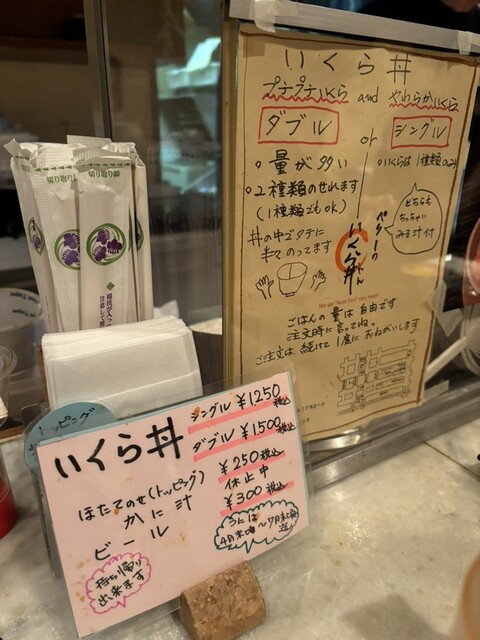 いくら丼
プチプチいくら and やわらかいくら
ダブル or シングル
。量が多い
。いくらは1種類のみ
。2種類のせれます
(1種類でもOK)
丼の中でタテに
半々のってます
どちらも
ちっちゃい
みそ汁付
いくら丼
ごはんの量は自由です
注文時に言ってね。
ご注文は続けて1度におねがいします
切り取り線
切り取り線
ッピング
いくら丼
シングル ¥1250税込
ダブル ¥1500税込
ほたてのせ(トッピング) ¥250税込
かに汁 休止中
ビール ¥300税込
持ち帰り
出来ます
うには
4月末頃~7月末頃
迄